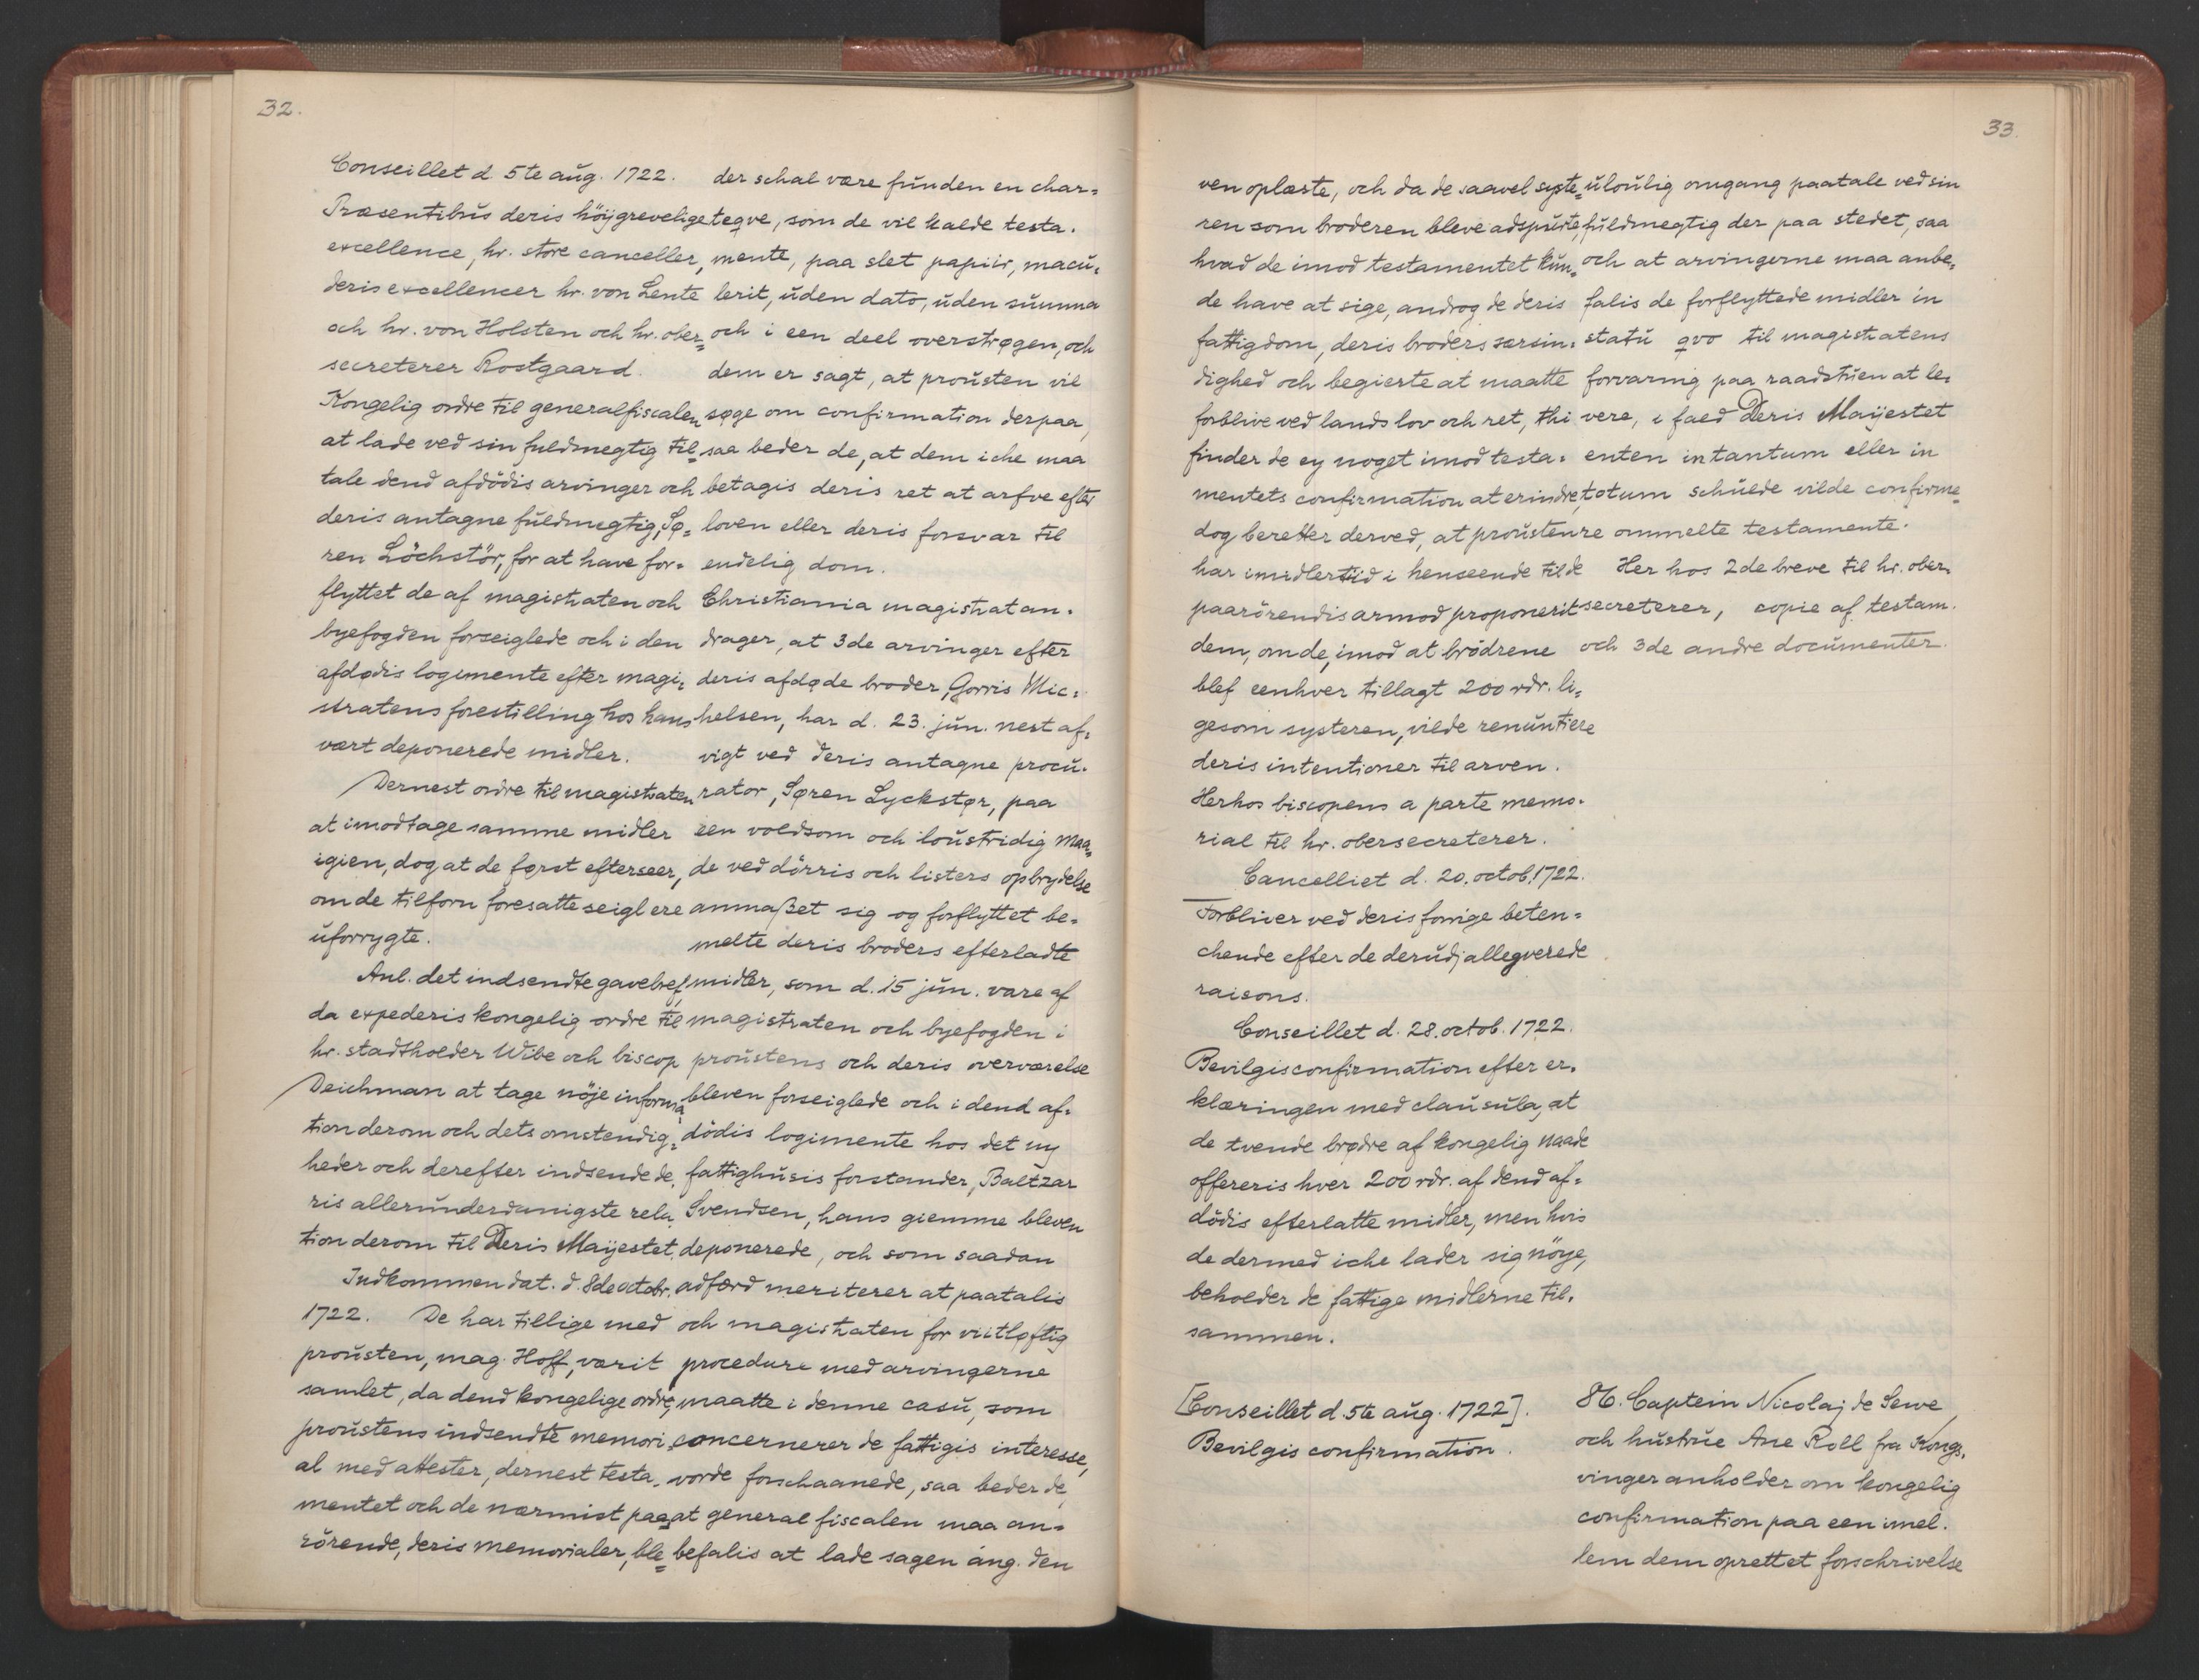 32.
Conseillet d 5te aug. 1722.
Præsentibus deris höjgrevelige
excellence, hr. store canceller,
deris excellencer hr. von Lente
och hr. von Holsten och hr. ober=
secreterer Rostgaard.
Kongelig ordre til generalfiscalen
at lade ved sin fuldmegtig til=
tale dend afdödis arvinger och
deris antagne fuldmegtig, Sø=
ren Löchstör, for at have for=
flyttet de af magistraten och
byefogden forseiglede och i den
afdødis logemente efter magi=
stratens forestilling hos hans
vært deponerede midler.
Dernest ordre til magistraten
at imodtage samme midler
igien, dog at de først efterseer,
om de tilforn foresatte seigl ere
uforrygte.
Anl. det indsendte gavebref,
da expederis kongelig ordre til
hr. stadtholder Wibe och biscop
Deichman at tage nöje informa=
tion derom och dets omstendig=
heder och derefter indsende de=
ris allerunderdanigste rela=
tion derom til Deris Maijestet.
Indkommen dat. d. 8de octobr.
1722. De har tillige med
prousten, mag. Hoff, værit
samlet, da dend kongelige ordre,
proustens indsendte memori=
al med attester, dernest testa=
mentet och de nærmist paa=
rörende, deris memorialer, ble=
der schal være funden en char=
teqve, som de vil kalde testa=
mente, paa slet papiir, macu=
lerit, uden dato, uden summa
och i een deel overstrøgen, och
dem er sagt, at prousten vil
søge om confirmation derpaa,
saa beder de, at dem iche maa
betagis deris ret at arfve efter
loven eller deris forsvar til
endelig dom.
Christiania magistrat an=
drager, at 3de arvinger efter
deris afdøde broder, Gorris Mic=
helsen, har d. 23. jun. nest af=
vigt ved deris antagne procu=
rator, Søren Lyckstør, paa
een voldsom och loustridig maa=
de ved dörris och listers opbrydelse
anmaßet sig og forflyttet be=
melte deris broders efterladte
midler, som d. 15 jun. vare af
magistraten och byefogden i
proustens och deris overværelse
bleven forseiglede och i dend af=
dödis logimente hos det ny
fattighusis forstander, Baltzar
Svendsen, hans giemme bleven
deponerede, och som saadan
adfærd meriterer at paatalis
och magistraten for viitløftig
procedure med arvingerne
maatte i denne casu, som
concernerer de fattigis interesse,
vorde forschaanede, saa beder de,
at general fiscalen maa an=
befalis at lade sagen ang. den
33.
ven oplæste, och da de saavel syste=
ren som broderen bleve adspurte,
hvad de imod testamentet kun=
de have at sige, androg de deris
fattigdom, deris broders særsin=
dighed och begierte at maatte
forblive ved lands lov och ret, thi
finder de ey noget imod testa=
mentets confirmation at erindre,
dog beretter derved, at prousten
har imidlertiid i henseende til de
paarörendis armod proponerit
dem, om de, imod at brödrene
blef eenhver tillagt 200 rdr. li=
gesom systeren, vilde renuntiere
deris intentioner til arven.
Herhos biscopens a parte memo=
rial til hr. obersecreterer.
Cancelliet d. 20. octob. 1722.
Forbliver ved deris forrige beten=
chende efter de derudj allegverede
raisons.
Conseillet d. 28. octob. 1722.
Bevilgis confirmation efter er=
klæringen med clausula, at
de tvende brødre af kongelig naade
offereris hver 200 rdr. af dend af=
dödis efterlatte midler, men hvis
de dermed iche lader sig nöye,
beholder de fattige midlerne til=
sammen.
uloulig omgang paatale ved sin
fuldmegtig der paa stedet, saa
och at arvingerne maa anbe=
falis de forflyttede midler in
statu qvo til magistratens
forvaring paa raadstuen at le=
vere, i fald Deris Maijestet
enten in tantum eller in
totum schulde vilde confirme=
re ommelte testamente.
Her hos 2de breve til hr. ober=
secreterer, copie af testam.
och 3de andre documenter.
[Conseillet d. 5te aug. 1722].
Bevilgis confirmation.
86. Captein Nicolaj de Seve
och hustrue Ane Roll fra Kongs=
vinger anholder om kongelig
confirmation paa een imel=
lem dem oprettet forschrivelse